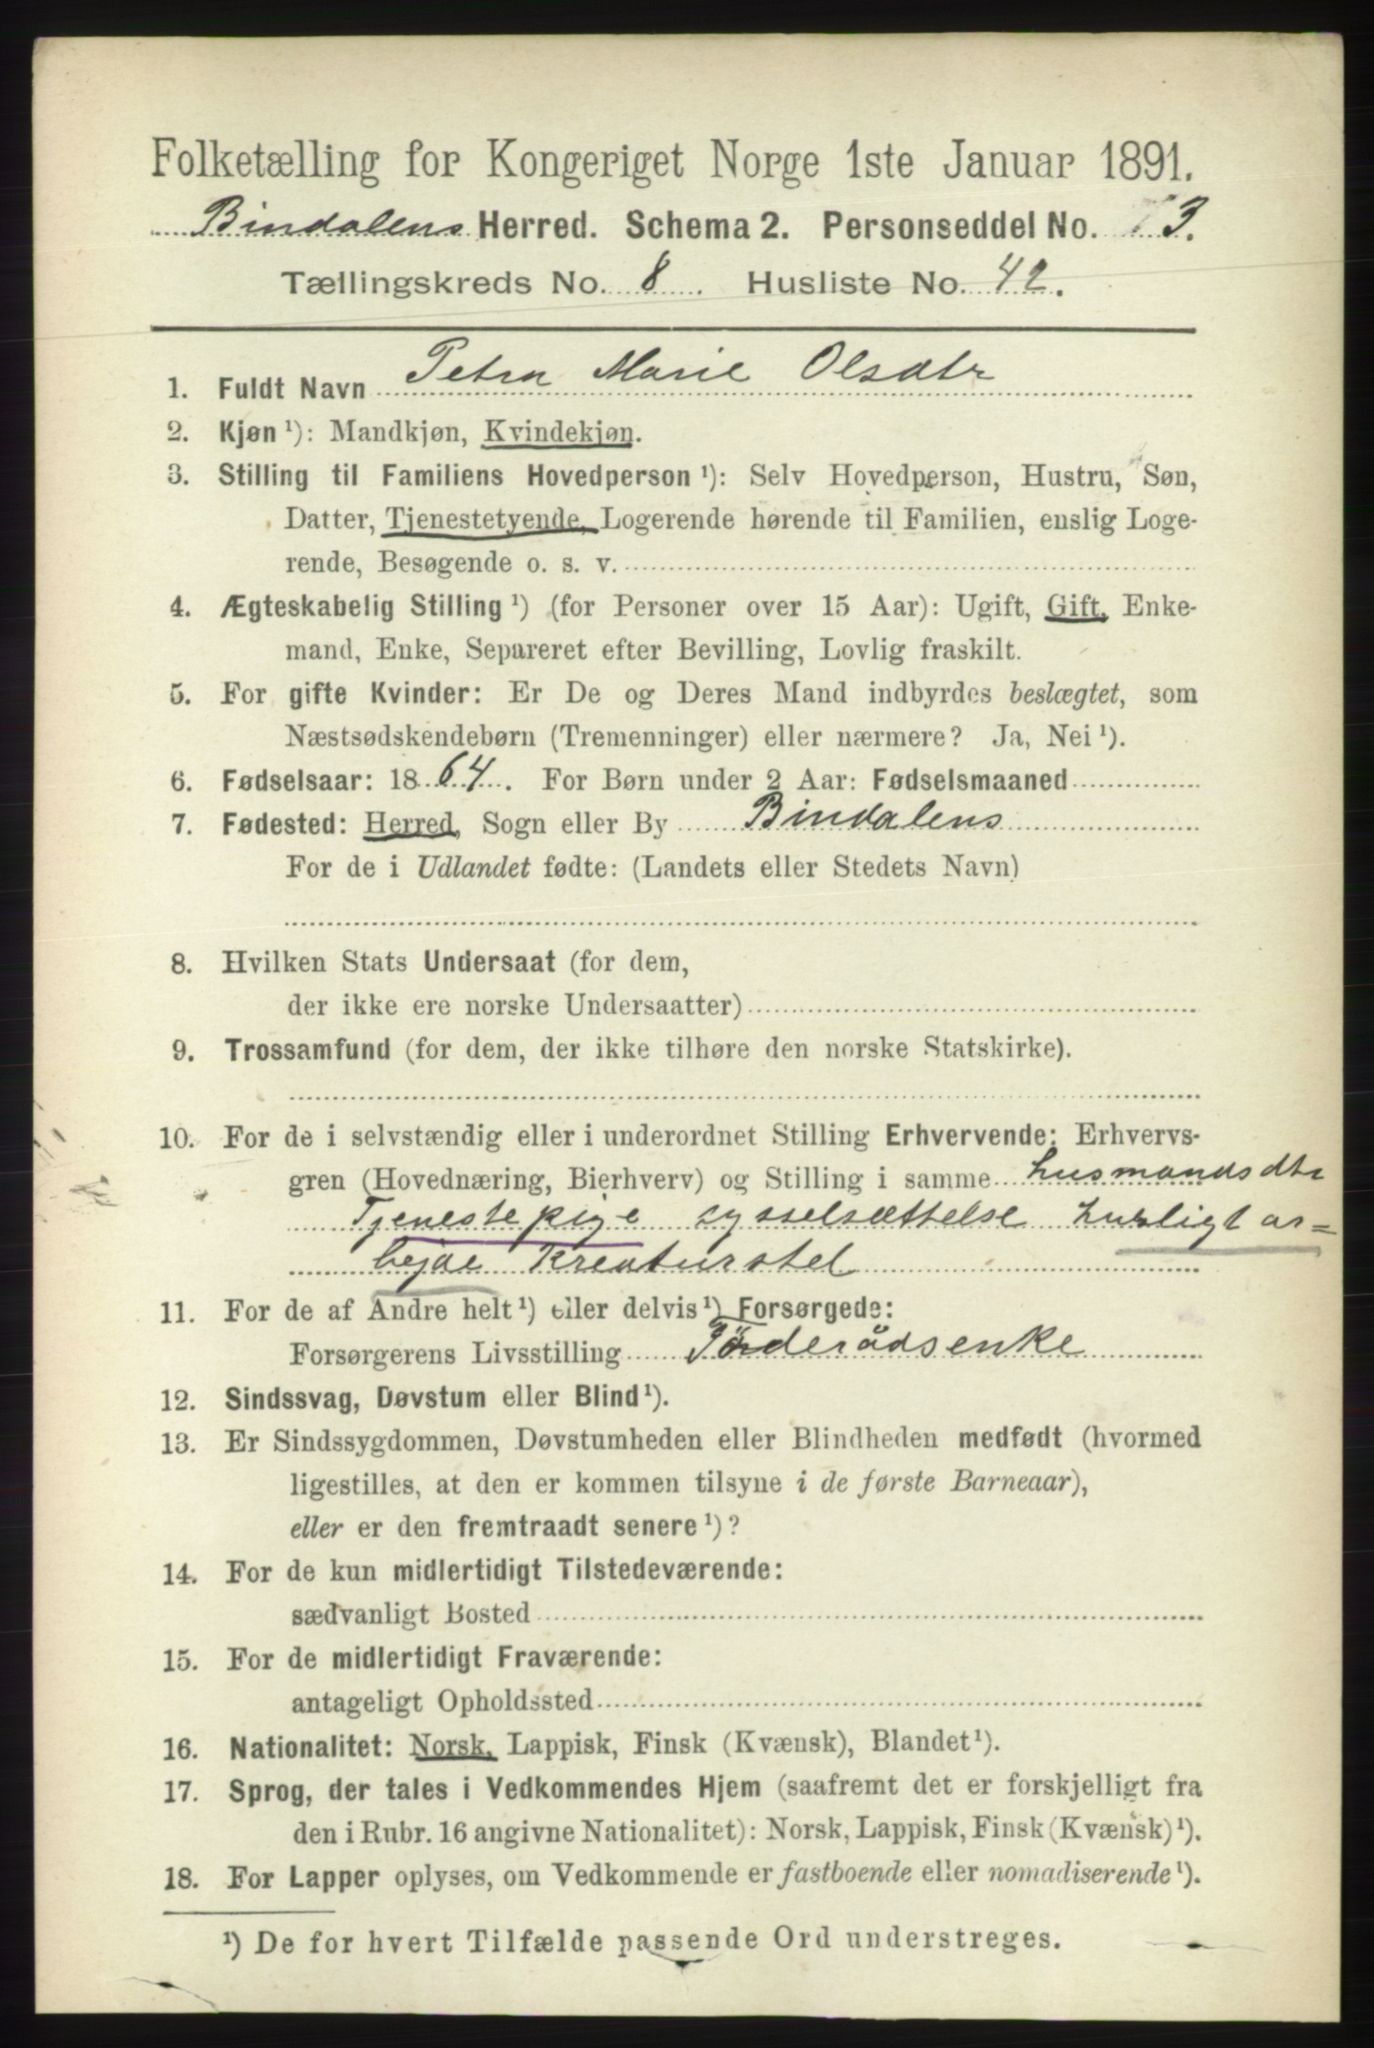 Folketælling for Kongeriget Norge 1ste Januar 1891.
Bindalens Herred. Schema 2. Personseddel No. 3.
Tællingskreds No. 8. Husliste No. 42.
1. Fuldt Navn Petra Marie Olsdtr
2. Kjøn ¹): Mandkjøn, Kvindekjøn.
3. Stilling til Familiens Hovedperson ¹): Selv Hovedperson, Hustru, Søn,
Datter, Tjenestetyende, Logerende hørende til Familien, enslig Loge-
rende, Besøgende o. s. v.
4. Ægteskabelig Stilling ¹) (for Personer over 15 Aar): Ugift, Gift, Enke-
mand, Enke, Separeret efter Bevilling, Lovlig fraskilt.
5. For gifte Kvinder: Er De og Deres Mand indbyrdes beslægtet, som
Næstsødskendebørn (Tremenninger) eller nærmere? Ja, Nei ¹).
6. Fødselsaar: 1864. For Børn under 2 Aar: Fødselsmaaned
7. Fødested: Herred, Sogn eller By Bindalens
For de i Udlandet fødte: (Landets eller Stedets Navn)
8. Hvilken Stats Undersaat (for dem,
der ikke ere norske Undersaatter)
9. Trossamfund (for dem, der ikke tilhøre den norske Statskirke).
10. For de i selvstændig eller i underordnet Stilling Erhvervende: Erhvervs-
gren (Hovednæring, Bierhverv) og Stilling i samme Husmandsdtr
Tjenestepige sysselsættelse Husligt ar=
bejde Kreaturstel
11. For de af Andre helt ¹) eller delvis ¹) Forsørgede:
Forsørgerens Livsstilling Föderådsenke
12. Sindssvag, Døvstum eller Blind ¹).
13. Er Sindssygdommen, Døvstumheden eller Blindheden medfødt (hvormed
ligestilles, at den er kommen tilsyne i de første Barneaar),
eller er den fremtraadt senere ¹)?
14. For de kun midlertidigt Tilstedeværende:
sædvanligt Bosted
15. For de midlertidigt Fraværende:
antageligt Opholdssted
16. Nationalitet: Norsk, Lappisk, Finsk (Kvænsk), Blandet ¹).
17. Sprog, der tales i Vedkommendes Hjem (saafremt det er forskjelligt fra
den i Rubr. 16 angivne Nationalitet): Norsk, Lappisk, Finsk (Kvænsk) ¹).
18. For Lapper oplyses, om Vedkommende er fastboende eller nomadiserende ¹).
¹) De for hvert Tilfælde passende Ord understreges.